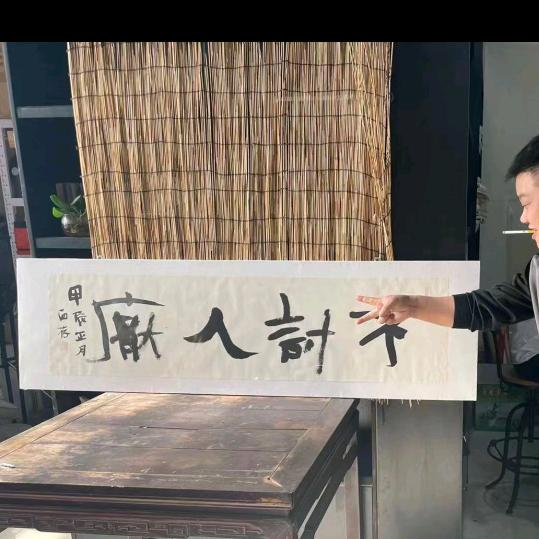 不討人厭
甲辰正月
西